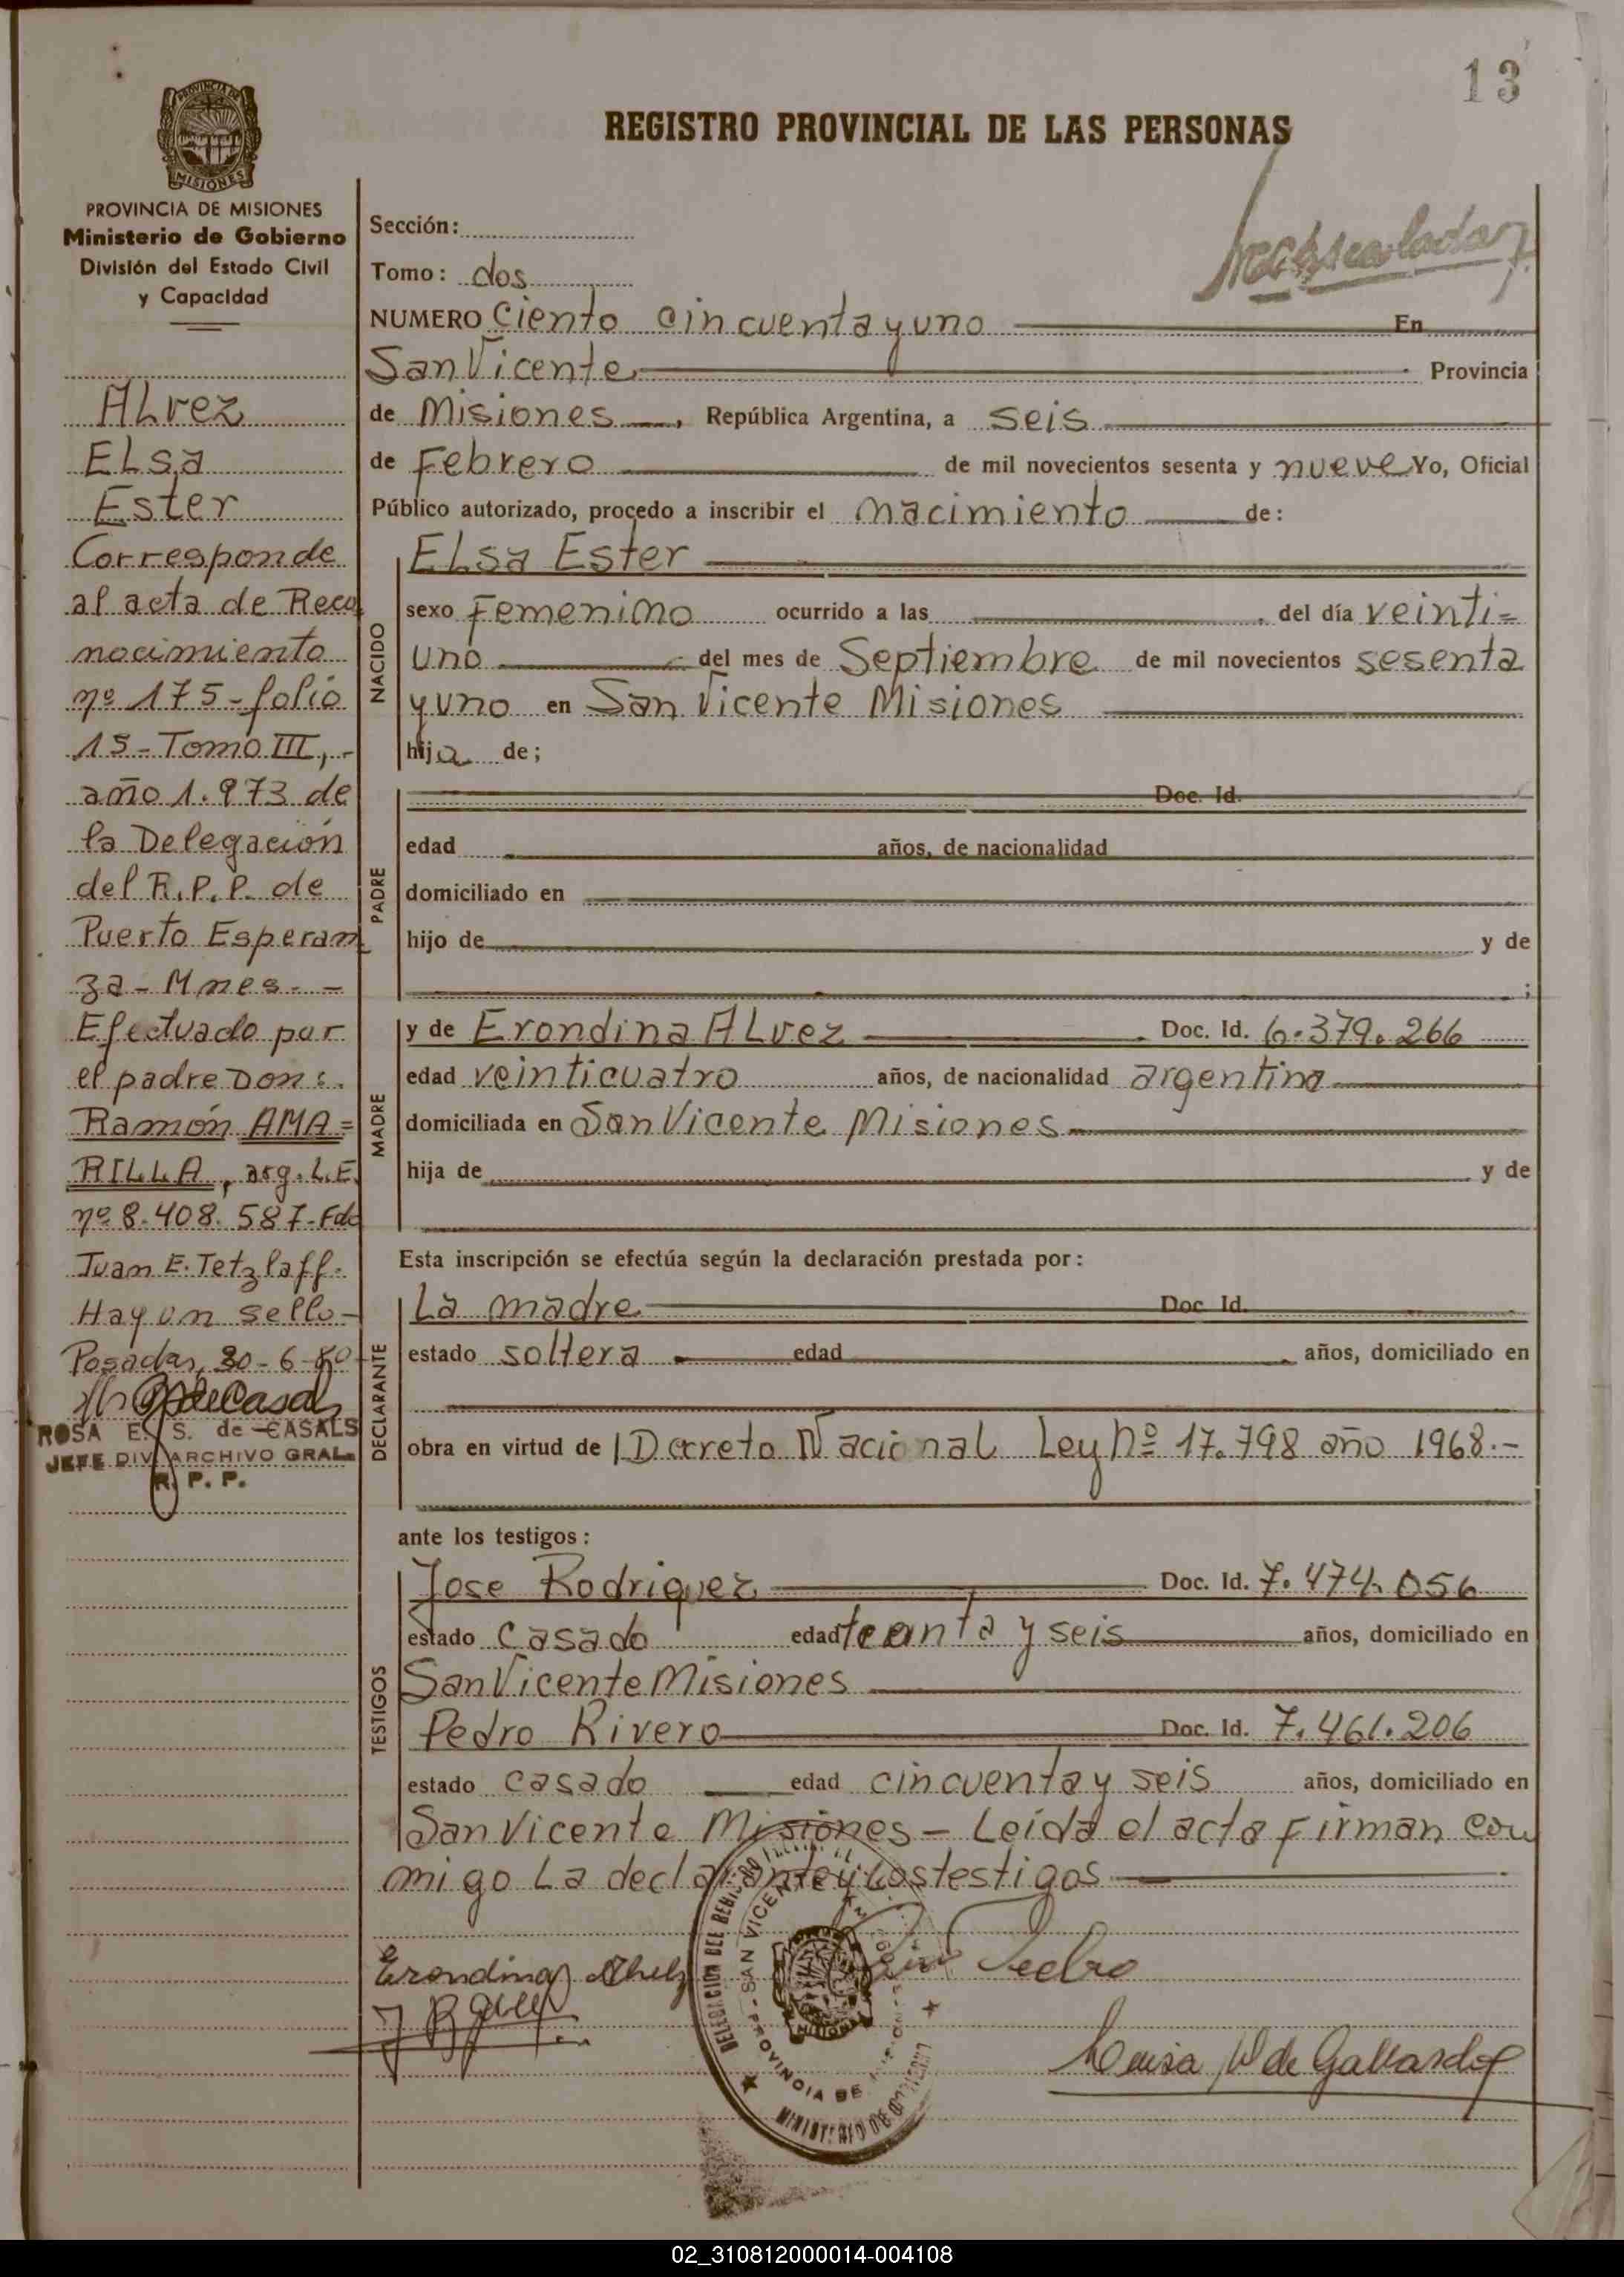 13
REGISTRO PROVINCIAL DE LAS PERSONAS
PROVINCIA DE MISIONES
PROVINCIA DE MISIONES
Ministerio de Gobierno
División del Estado Civil
y Capacidad
ALvez
ELsa
Ester
Corresponde
al acta de Reco
nocimiento
nº 175 - folio
15 - Tomo III, -
año 1.973 de
la Delegación
del R.P.P. de
Puerto Esperan
za - Mnes. -
Efectuado por
el padre Don:
Ramón AMA=
RILLA, arg. L.E.
nº 8.408.587 - Fdo
Juan E. Tetzlaff.
Hay un sello -
Posadas, 30-6-80
ROSA E. S. de CASALS
JEFE DIV. ARCHIVO GRAL.
R. P. P.
Sección:
Tomo: dos
NUMERO Ciento cincuenta y uno En
San Vicente Provincia
de Misiones, República Argentina, a seis
de Febrero de mil novecientos sesenta y nueve Yo, Oficial
Público autorizado, procedo a inscribir el nacimiento de:
NACIDO
ELsa Ester
sexo Femenino ocurrido a las , del día veinti=
uno del mes de Septiembre de mil novecientos sesenta
y uno en San Vicente Misiones
hija de;
PADRE
Doc. Id.
edad años, de nacionalidad
domiciliado en
hijo de y de
;
MADRE
y de Erondina ALvez Doc. Id. 6.379.266
edad veinticuatro años, de nacionalidad argentina
domiciliada en San Vicente Misiones
hija de y de
Esta inscripción se efectúa según la declaración prestada por:
DECLARANTE
La madre Doc. Id.
estado soltera edad años, domiciliado en
obra en virtud de Decreto Nacional Ley Nº 17.798 año 1968.-
ante los testigos:
TESTIGOS
Jose Rodriguez Doc. Id. 7.474.056
estado casado edad treanta y seis años, domiciliado en
San Vicente Misiones
Pedro Rivero Doc. Id. 7.461.206
estado casado edad cincuenta y seis años, domiciliado en
San Vicente Misiones - Leída el acta firman con
migo La declarante y Los testigos
Erondina Alvez
Pedro
Luisa W de Gallardo
DELEGACION DEL
SAN VICENTE
PROVINCIA DE
MINISTERIO DE
02_310812000014-004108